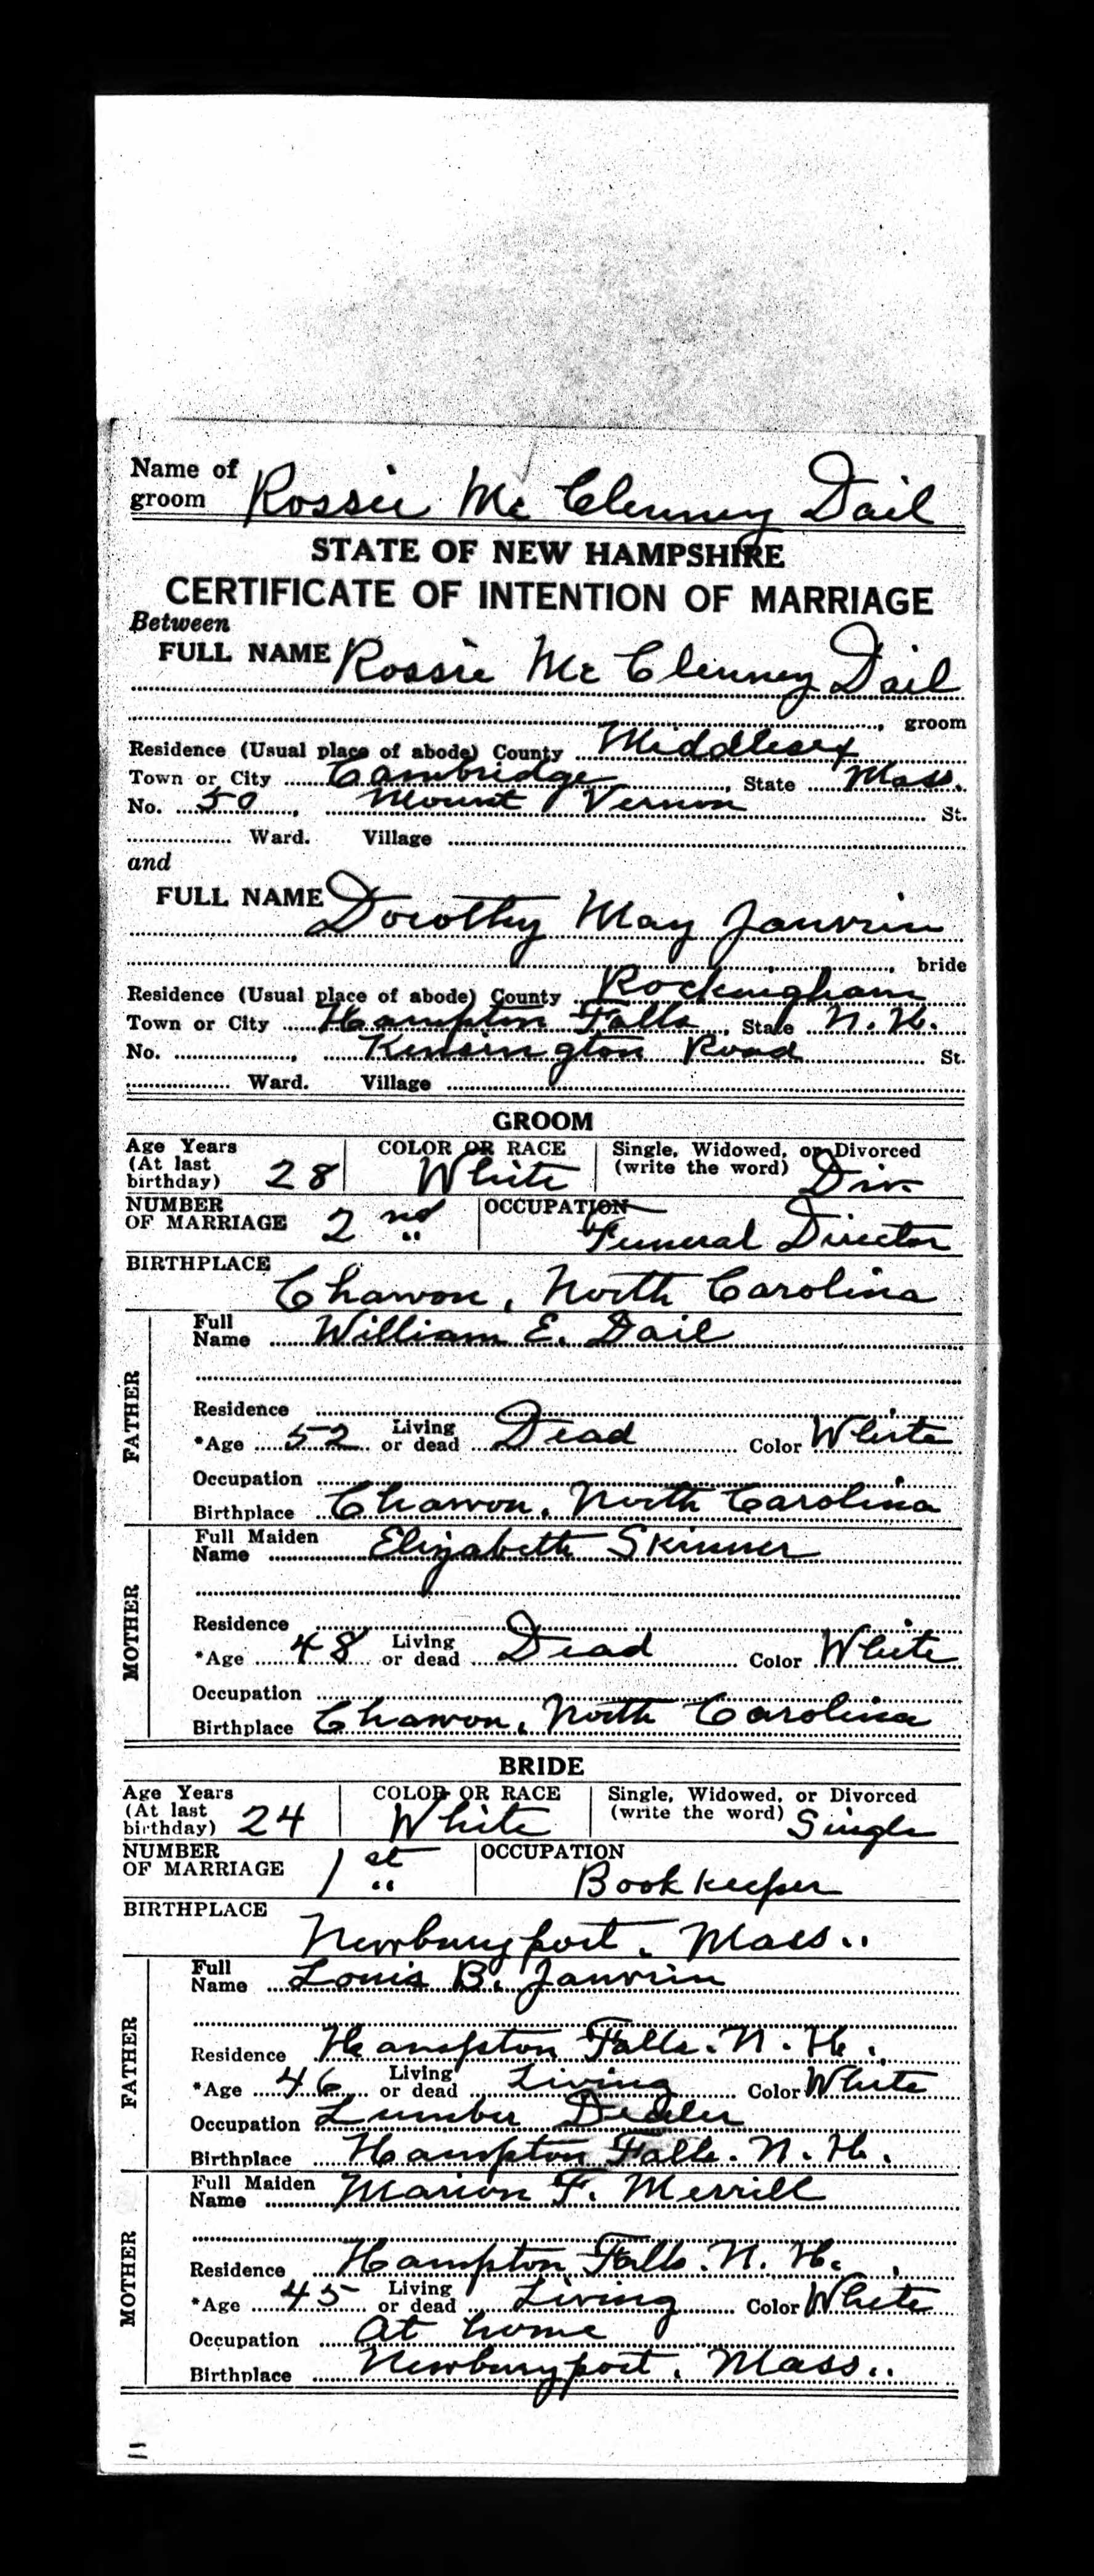 Name of
groom Rossie Mc Clenney Dail
STATE OF NEW HAMPSHIRE
CERTIFICATE OF INTENTION OF MARRIAGE
Between
FULL NAME Rossie Mc Clenney Dail
, groom
Residence (Usual place of abode) County Middlesex
Town or City Cambridge, State Mass.
No. 50, Mount Vernon St.
Ward. Village
and
FULL NAME Dorothy May Janvrin
, bride
Residence (Usual place of abode) County Rockingham
Town or City Hampton Falls, State N.H.
No. , Kensington Road St.
Ward. Village
GROOM
Age Years (At last birthday) 28 COLOR OR RACE White Single, Widowed, or Divorced (write the word) Div.
NUMBER OF MARRIAGE 2nd OCCUPATION Funeral Director
BIRTHPLACE Chawon, North Carolina
FATHER
Full Name William E. Dail
Residence
*Age 52 Living or dead Dead Color White
Occupation
Birthplace Chawon, North Carolina
MOTHER
Full Maiden Name Elizabeth Skinner
Residence
*Age 48 Living or dead Dead Color White
Occupation
Birthplace Chawon, North Carolina
BRIDE
Age Years (At last birthday) 24 COLOR OR RACE White Single, Widowed, or Divorced (write the word) Single
NUMBER OF MARRIAGE 1st OCCUPATION Book keeper
BIRTHPLACE Newburyport, Mass..
FATHER
Full Name Louis B. Janvrin
Residence Hampton Falls. N. H.
*Age 46 Living or dead Living Color White
Occupation Lumber Dealer
Birthplace Hampton Falls. N. H.
MOTHER
Full Maiden Name Marion F. Merrill
Residence Hampton Falls. N. H.
*Age 45 Living or dead Living Color White
Occupation At home
Birthplace Newburyport, Mass..